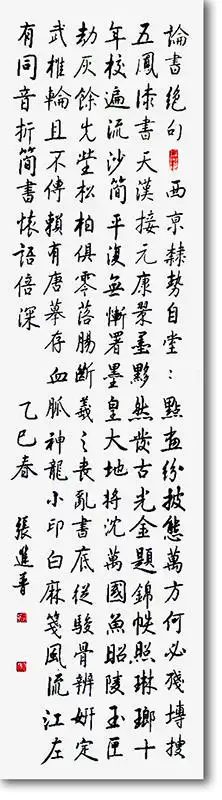 論書絕句 西京隸勢自堂〻點畫紛披態萬方何必殘塼搜
五鳳漆書天漢接元康翠墨黟然發古光金題錦帙照琳瑯十
年校遍流沙簡平復無慚署墨皇大地將沈萬國魚昭陵玉匣
劫灰餘先塋松柏俱零落腸斷羲之喪亂書底從駿骨辨妍定
武椎輪且不傳賴有唐摹存血脈神龍小印白麻箋風流江左
有同音折簡書懷語倍深 乙巳春 張進